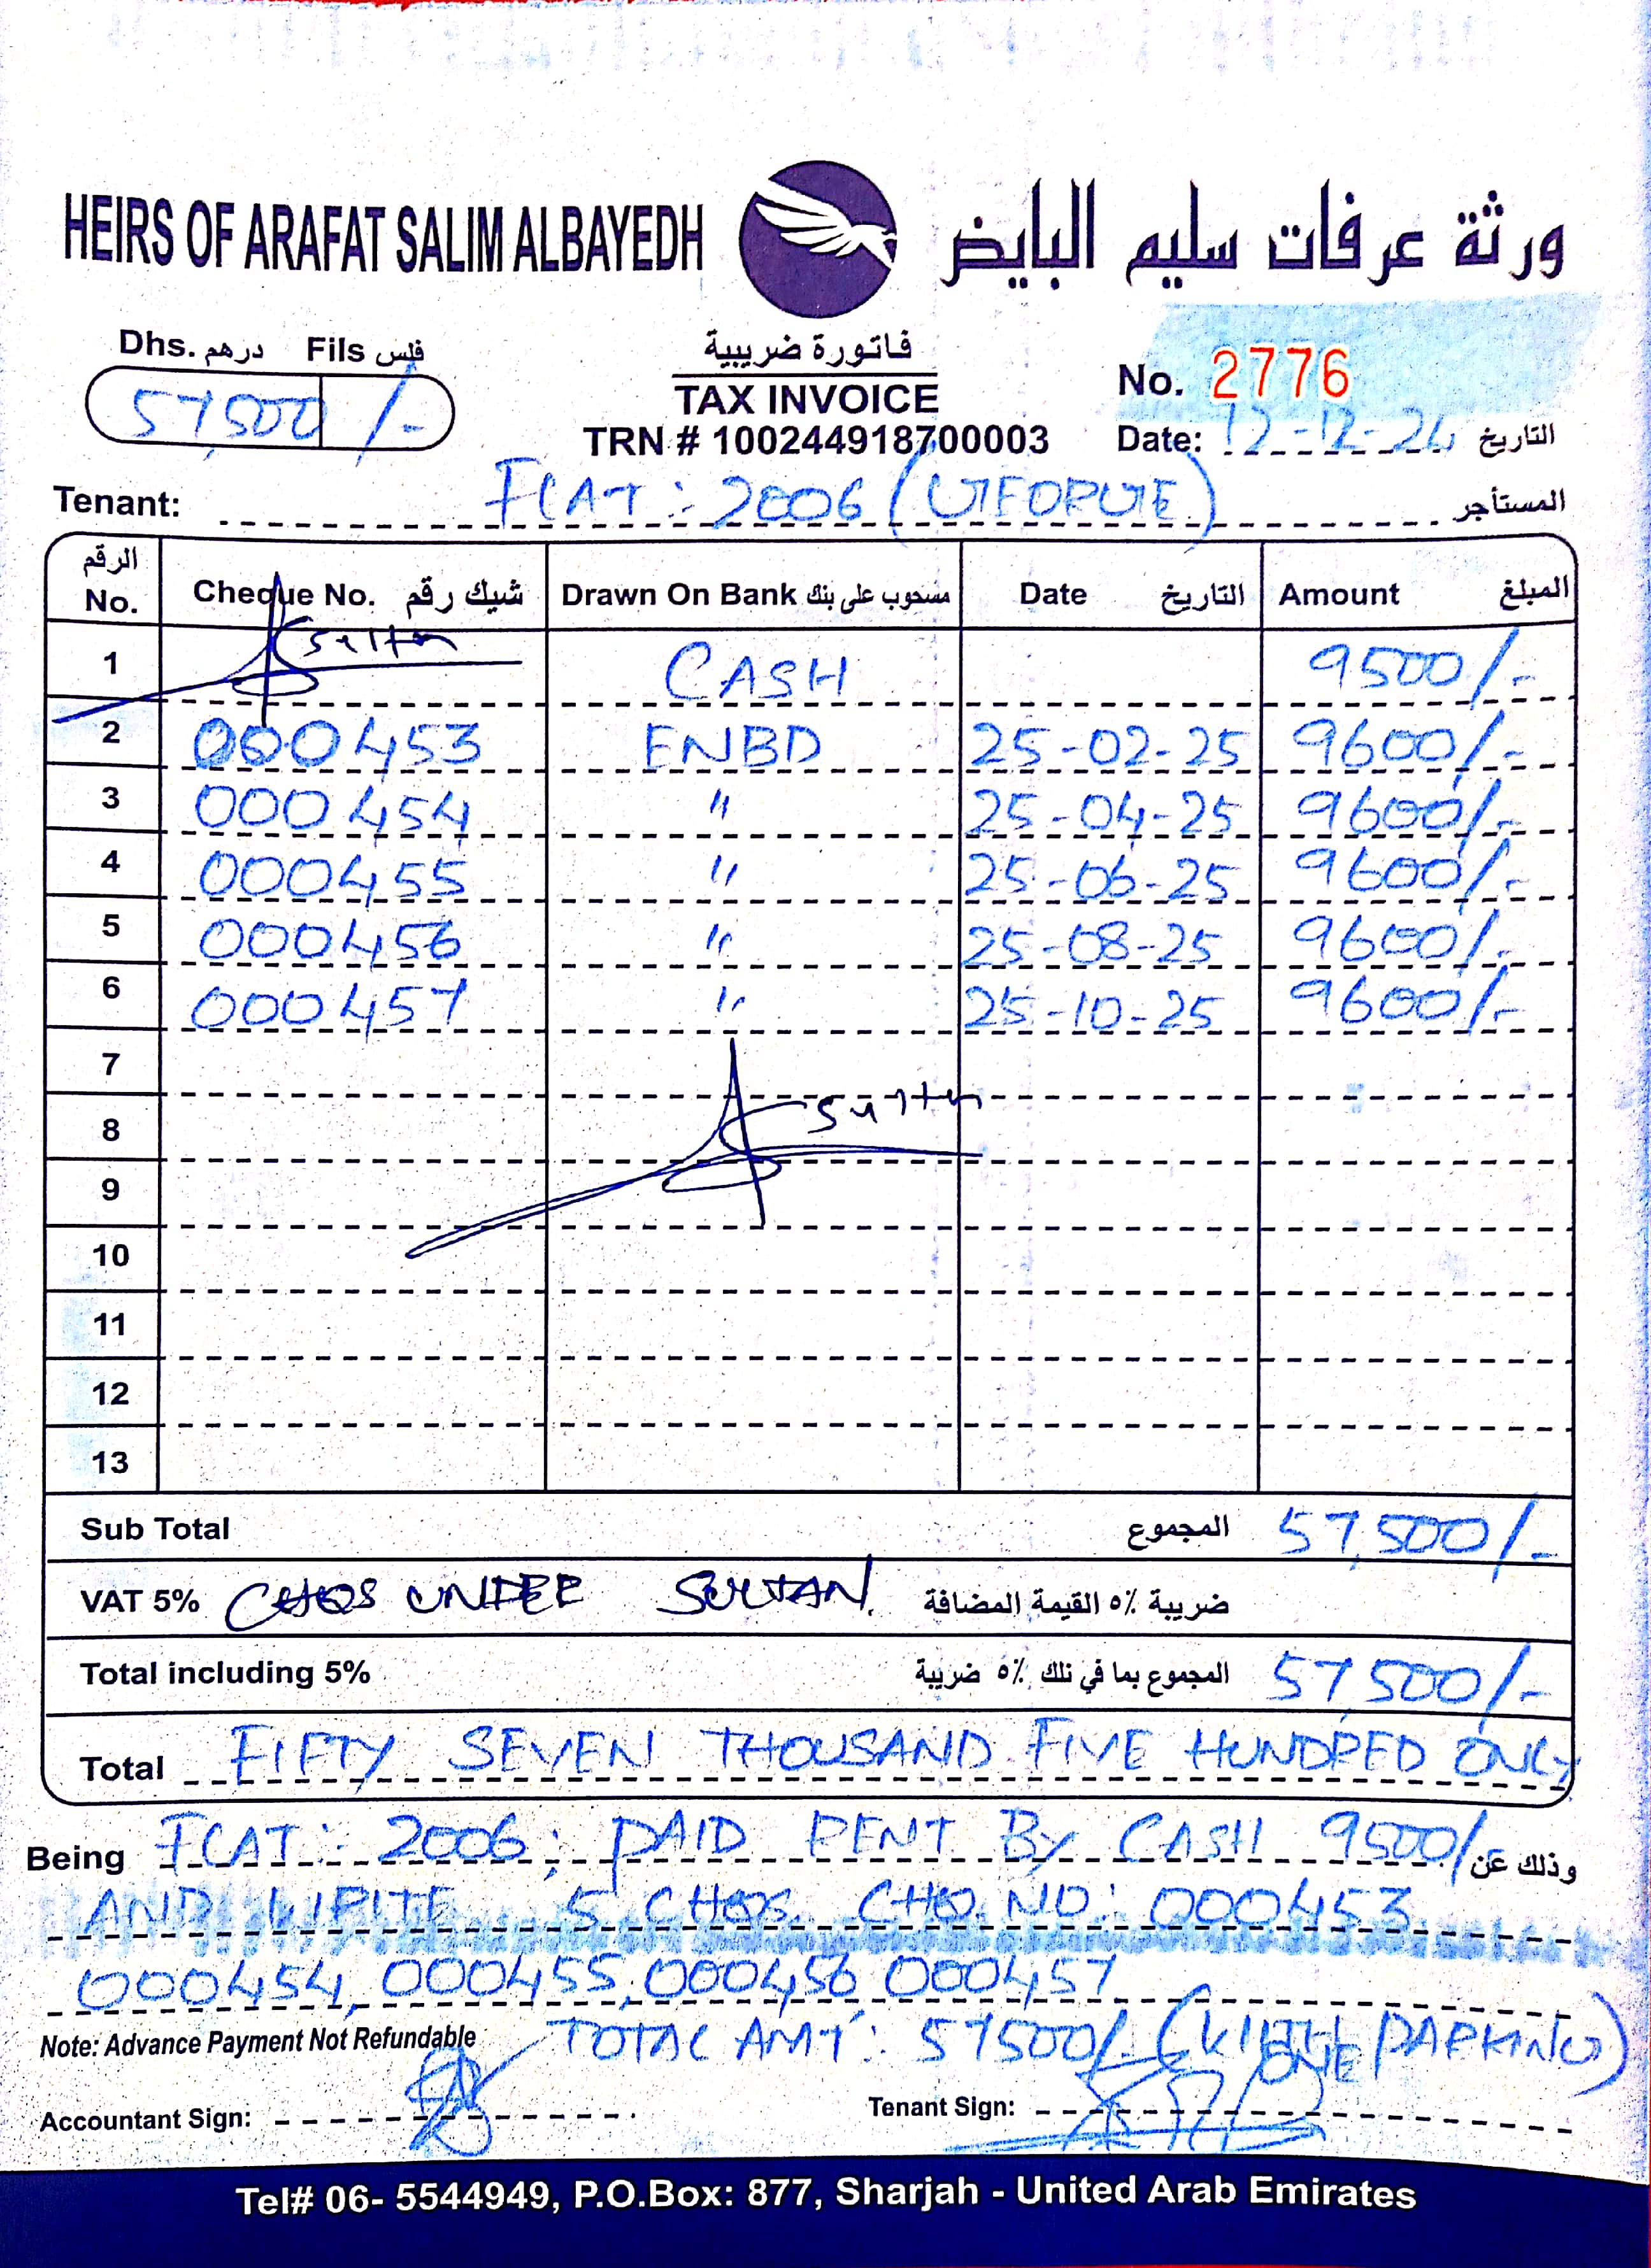 HEIRS OF ARAFAT SALIM ALBAYEDH ورثة عرفات سليم البايض
Dhs. درهم Fils فلس
57,500 /-
فاتورة ضريبية
TAX INVOICE
TRN # 100244918700003
No. 2776
Date: 12-12-24 التاريخ
Tenant: FLAT: 2006 المستأجر
الرقم No. Cheque No. شيك رقم Drawn On Bank مسحوب على بنك Date التاريخ Amount المبلغ
1 Sultan CASH 9500/-
2 000453 ENBD 25-02-25 9600/-
3 000454 " 25-04-25 9600/-
4 000455 " 25-06-25 9600/-
5 000456 " 25-08-25 9600/-
6 000457 " 25-10-25 9600/-
7
8 Sultan
9
10
11
12
13
Sub Total المجموع 57,500/-
VAT 5% CHQS UNDER SULTAN. ضريبة ٥% القيمة المضافة
Total including 5% المجموع بما في ذلك ٥% ضريبة 57,500/-
Total FIFTY SEVEN THOUSAND FIVE HUNDRED ONLY
Being FLAT: 2006; PAID RENT BY CASH 9500/- وذلك عن
AND 5 CHQS. CHQ. NO: 000453
000454, 000455, 000456 000457
Note: Advance Payment Not Refundable TOTAL AMT: 57500/- (WITH ONE PARKING)
Accountant Sign: Tenant Sign:
Tel# 06- 5544949, P.O.Box: 877, Sharjah - United Arab Emirates